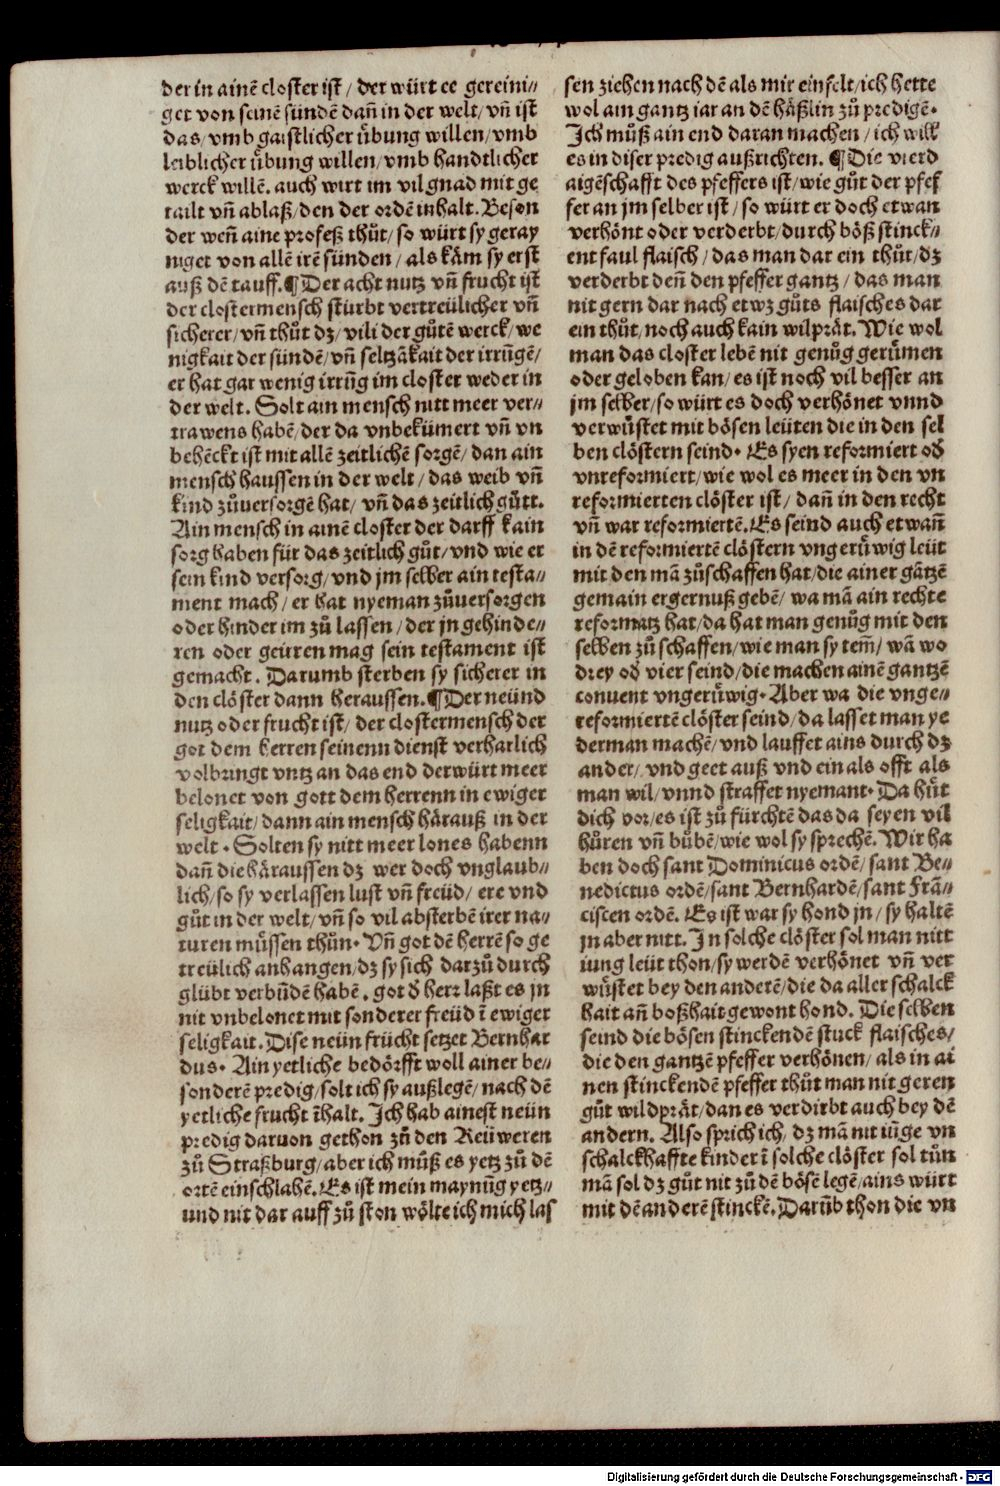 der in ainē closter ist / der würt ee gereini⸗
get von seinē sündē dañ in der welt/ vñ ist
das/ vmb gaistlicher übung willen/ vmb
leiblicher übung willen/ vmb handtlicher
werck willē. auch wirt im vil gnad mit ge
tailt vñ ablaß/ den der ordē inhalt. Beson
der weñ aine profeß thůt/ so würt sy geray
niget von allē irē sünden / als käm sy erst
auß dē tauff. ¶ Der acht nutz vñ frucht ist
der clostermensch stürbt vertreülicher vñ
sicherer/ vñ thůt dz/ vili der gůtē werck/ we
nigkait der sündē/ vñ seltzākait der irrūgē/
er hat gar wenig irrūg im closter weder in
der welt. Solt ain mensch nitt meer ver⸗
trawens habē/ der da vnbekümert vñ vn
behēckt ist mit allē zeitlichē sorgē/ dan ain
mensch haussen in der welt / das weib vñ
kind zůuersorgē hat/ vñ das zeitlich gůtt.
Ain mensch in ainē closter der darff kain
sorg haben für das zeitlich gůt/ vnd wie er
sein kind versorg/ vnd jm selber ain testa⸗
ment mach/ er hat nyeman zůuersorgen
oder hinder im zů lassen / der jn gehinde⸗
ren oder geirren mag sein testament ist
gemacht. Darumb sterben sy sicherer in
den clöster dann heraussen. ¶ Der neünd
nutz oder frucht ist/ der clostermensch der
got dem herren seinenn dienst verharlich
volbringt vntz an das end der würt meer
belonet von gott dem herrenn in ewiger
seligkait/ dann ain mensch härauß in der
welt. Solten sy nitt meer lones habenn
dañ die häraussen dz wer doch vnglaub⸗
lich/ so sy verlassen lust vñ freüd/ ere vnd
gůt in der welt/ vñ so vil absterbē irer na⸗
turen müssen thůn. Vñ got dē herrē so ge
treülich anhangen/ dz sy sich darzů durch
glübt verbūdē habē. got ď herr laßt es jn
nit vnbelonet mit sonderer freüd ī ewiger
seligkait. Dise neün frücht setzet Bernhar
dus. Ain yetliche bedörfft woll ainer be⸗
sonderē predig/ solt ich sy außlegē/ nach dē
yetliche frucht īhalt. Ich hab ainest neün
predig daruon gethon zů den Reüweren
zů Straßburg/ aber ich můß es yetz zů dē
ortē einschlahē. Es ist mein maynūg yetz⸗
und nit dar auff zů ston wölte ich mich las
sen ziehen nach dē als mir einfelt/ ich hette
wol ain gantz iar an dē häßlin zů predigē.
Ich můß ain end daran machen / ich will
es in diser predig außrichten. ¶ Die vierd
aigēschafft des pfeffers ist/ wie gůt der pfef
fer an jm selber ist / so würt er doch etwan
verhönt oder verderbt/ durch böß stinck⸗
ent faul flaisch / das man dar ein thůt/ dz
verderbt deñ den pfeffer gantz / das man
nit gern dar nach etwz gůts flaisches dar
ein thůt/ noch auch kain wilprät. Wie wol
man das closter lebē nit genůg gerümen
oder geloben kan/ es ist noch vil besser an
jm selber/ so würt es doch verhönet vnnd
verwůstet mit bösen leüten die in den sel
ben clöstern seind. Es syen reformiert oď
vnreformiert/ wie wol es meer in den vn
reformierten clöster ist / dañ in den recht
vñ war reformiertē. Es seind auch etwañ
in dē reformiertē clöstern vngerüwig leüt
mit den mā zůschaffen hat/ die ainer gātzē
gemain ergernuß gebē/ wa mā ain rechte
reformatz hat/ da hat man genůg mit den
selben zů schaffen/ wie man sy tem̄/ wā wo
drey oď vier seind/ die machen ainē gantzē
conuent vngerüwig. Aber wa die vnge⸗
reformiertē clöster seind/ da lasset man ye
derman machē/ vnd lauffet ains durch dz
ander/ vnd geet auß vnd ein als offt als
man wil/ vnnd straffet nyemant. Da hüt
dich vor/ es ist zů fürchtē das da seyen vil
hůren vñ bůbē/ wie wol sy sprechē. Wir ha
ben doch sant Dominicus ordē/ sant Be⸗
nedictus ordē/ sant Bernhardē/ sant Frā⸗
ciscen ordē. Es ist war sy hond jn / sy haltē
jn aber nitt. In solche clöster sol man nitt
iung leüt thon/ sy werdē verhönet vñ ver
wüstet bey den anderē/ die da aller schalck
hait añ boßhait gewont hond. Die selben
seind die bösen stinckendē stuck flaisches/
die den gantzē pfeffer verhönen/ als in ai
nen stinckendē pfeffer thůt man nit geren
gůt wildprät/ dan es verdirbt auch bey dē
andern. Also sprich ich/ dz mā nit iūge vn
schalckhaffte kinder ī solche clöster sol tůn
mā sol dz gůt nit zů dē böse legē/ ains würt
mit dē anderē stinckē. Darūb thon die vn
Digitalisierung gefördert durch die Deutsche Forschungsgemeinschaft - DFG